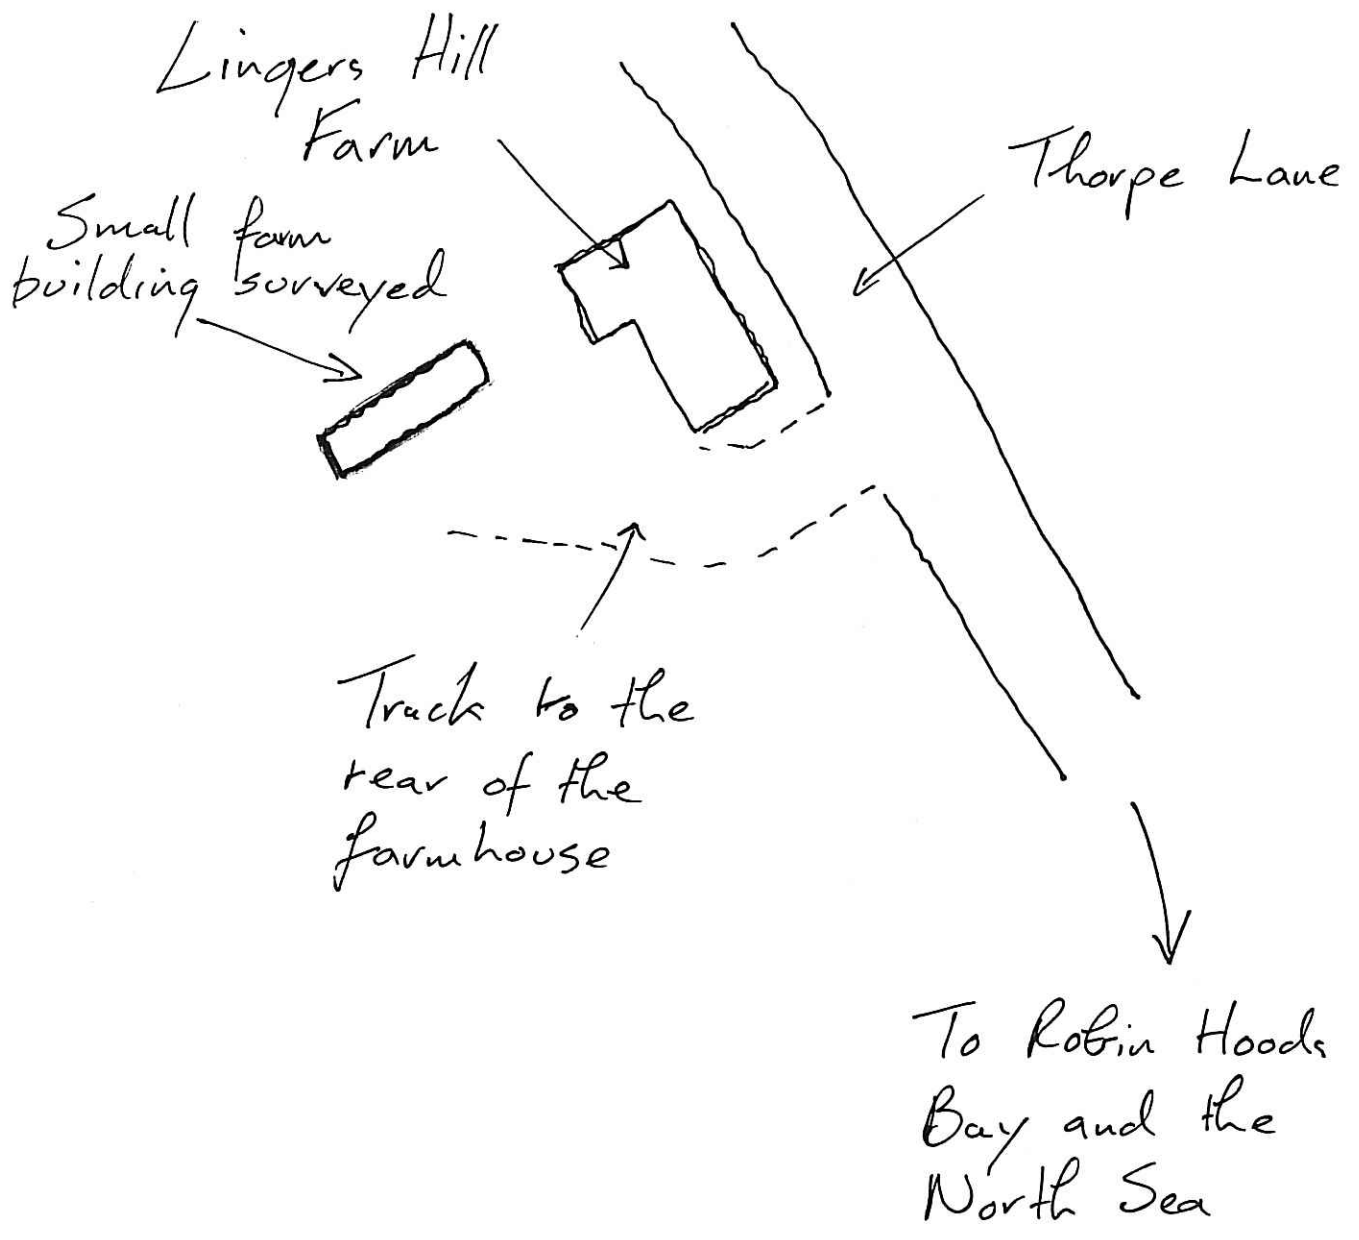 Lingers Hill
Farm
Thorpe Lane
Small farm
building surveyed
Track to the
rear of the
farmhouse
To Robin Hoods
Bay and the
North Sea